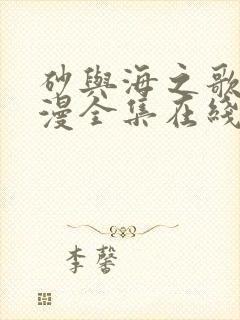 砂與海之歌
漫全集在綫
李馨